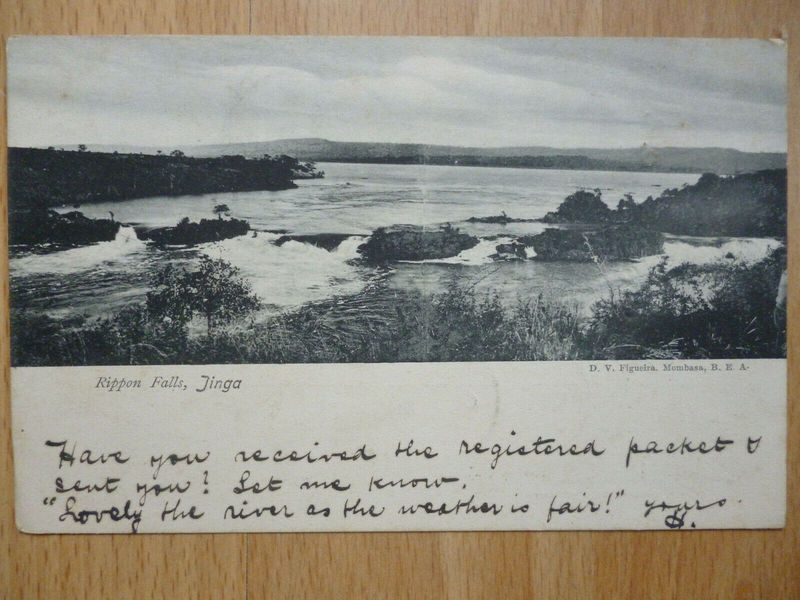 Rippon Falls, Jinga
D. V. Figueira. Mombasa, B. E. A.
Have you received the registered packet I
sent you? Let me know.
"Lovely the river as the weather is fair!" yours